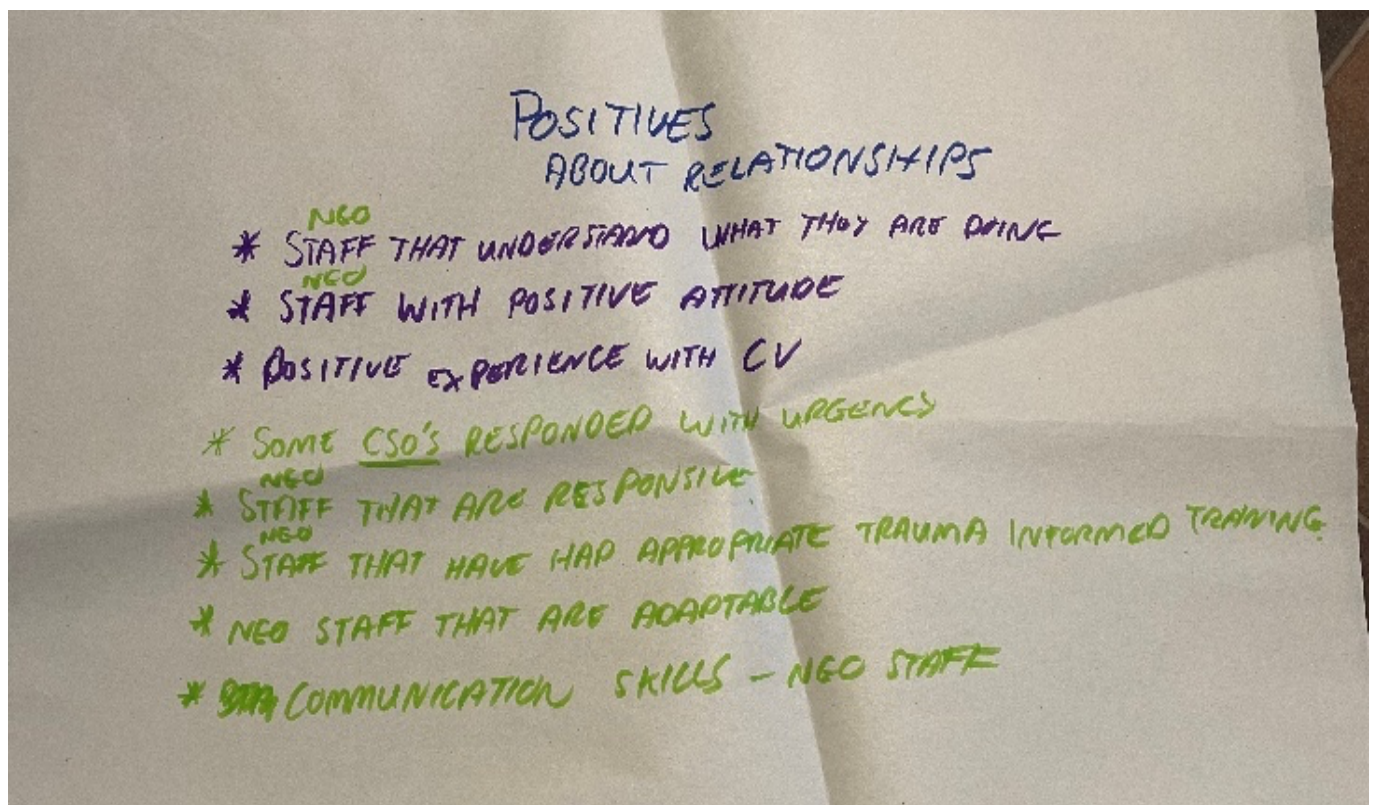 POSITIVES
ABOUT RELATIONSHIPS
NGO
* STAFF THAT UNDERSTAND WHAT THEY ARE DOING
NGO
* STAFF WITH POSITIVE ATTITUDE
* POSITIVE EXPERIENCE WITH CV
* SOME CSO'S RESPONDED WITH URGENCY
NGO
* STAFF THAT ARE RESPONSIVE
NGO
* STAFF THAT HAVE HAD APPROPRIATE TRAUMA INFORMED TRAINING
* NGO STAFF THAT ARE ADAPTABLE
* COMMUNICATION SKILLS - NGO STAFF